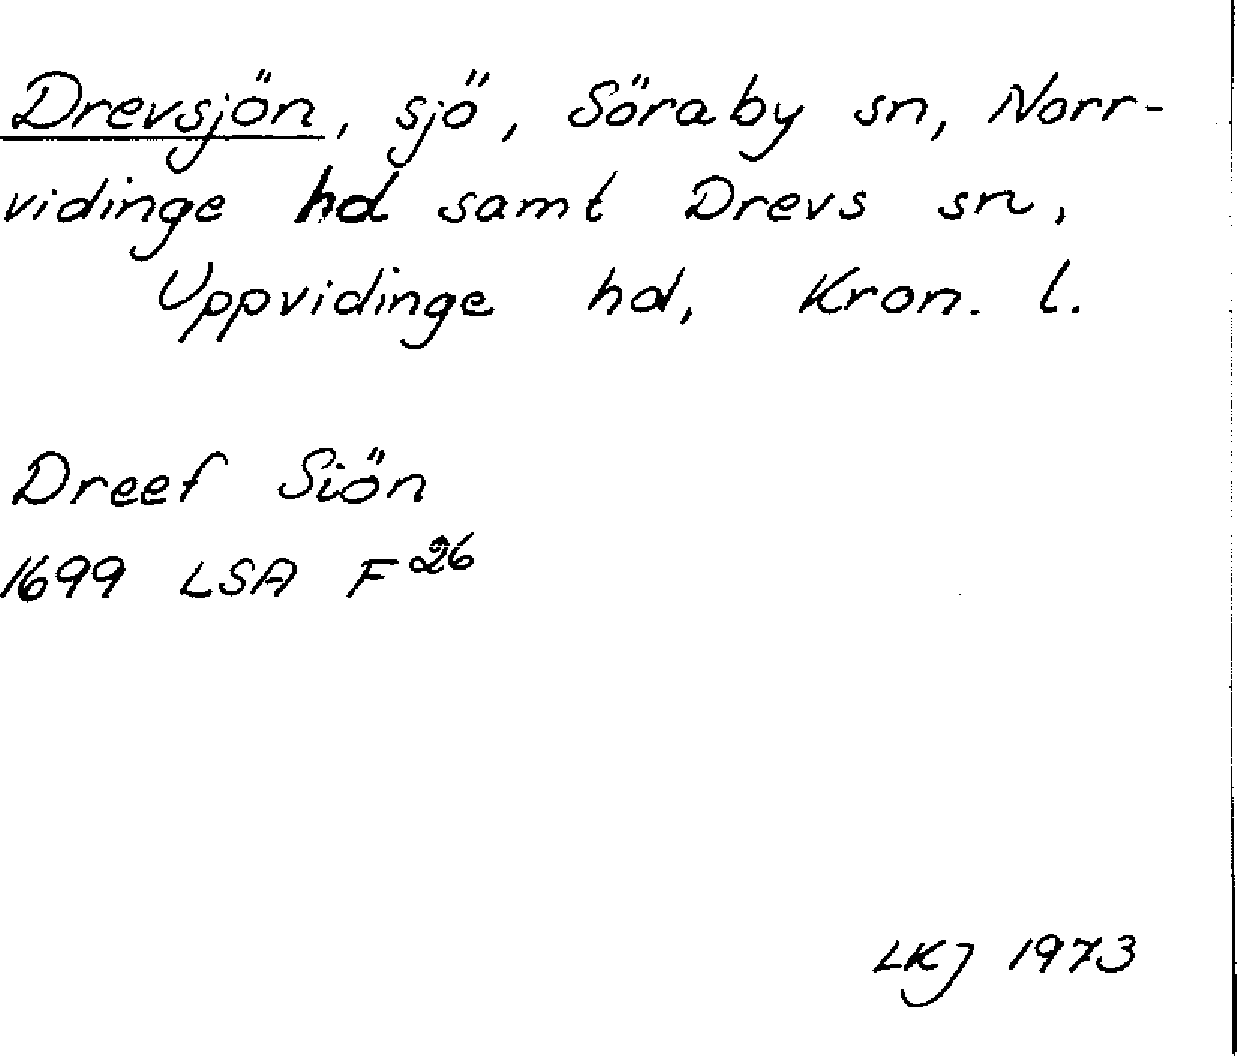 Drevsjön, sjö, Söraby sn, Norr-
vidinge hd samt Drevs sn,
Uppvidinge hd, Kron. l.
Dreef Siön
1699 LSA F26
LKJ 1973